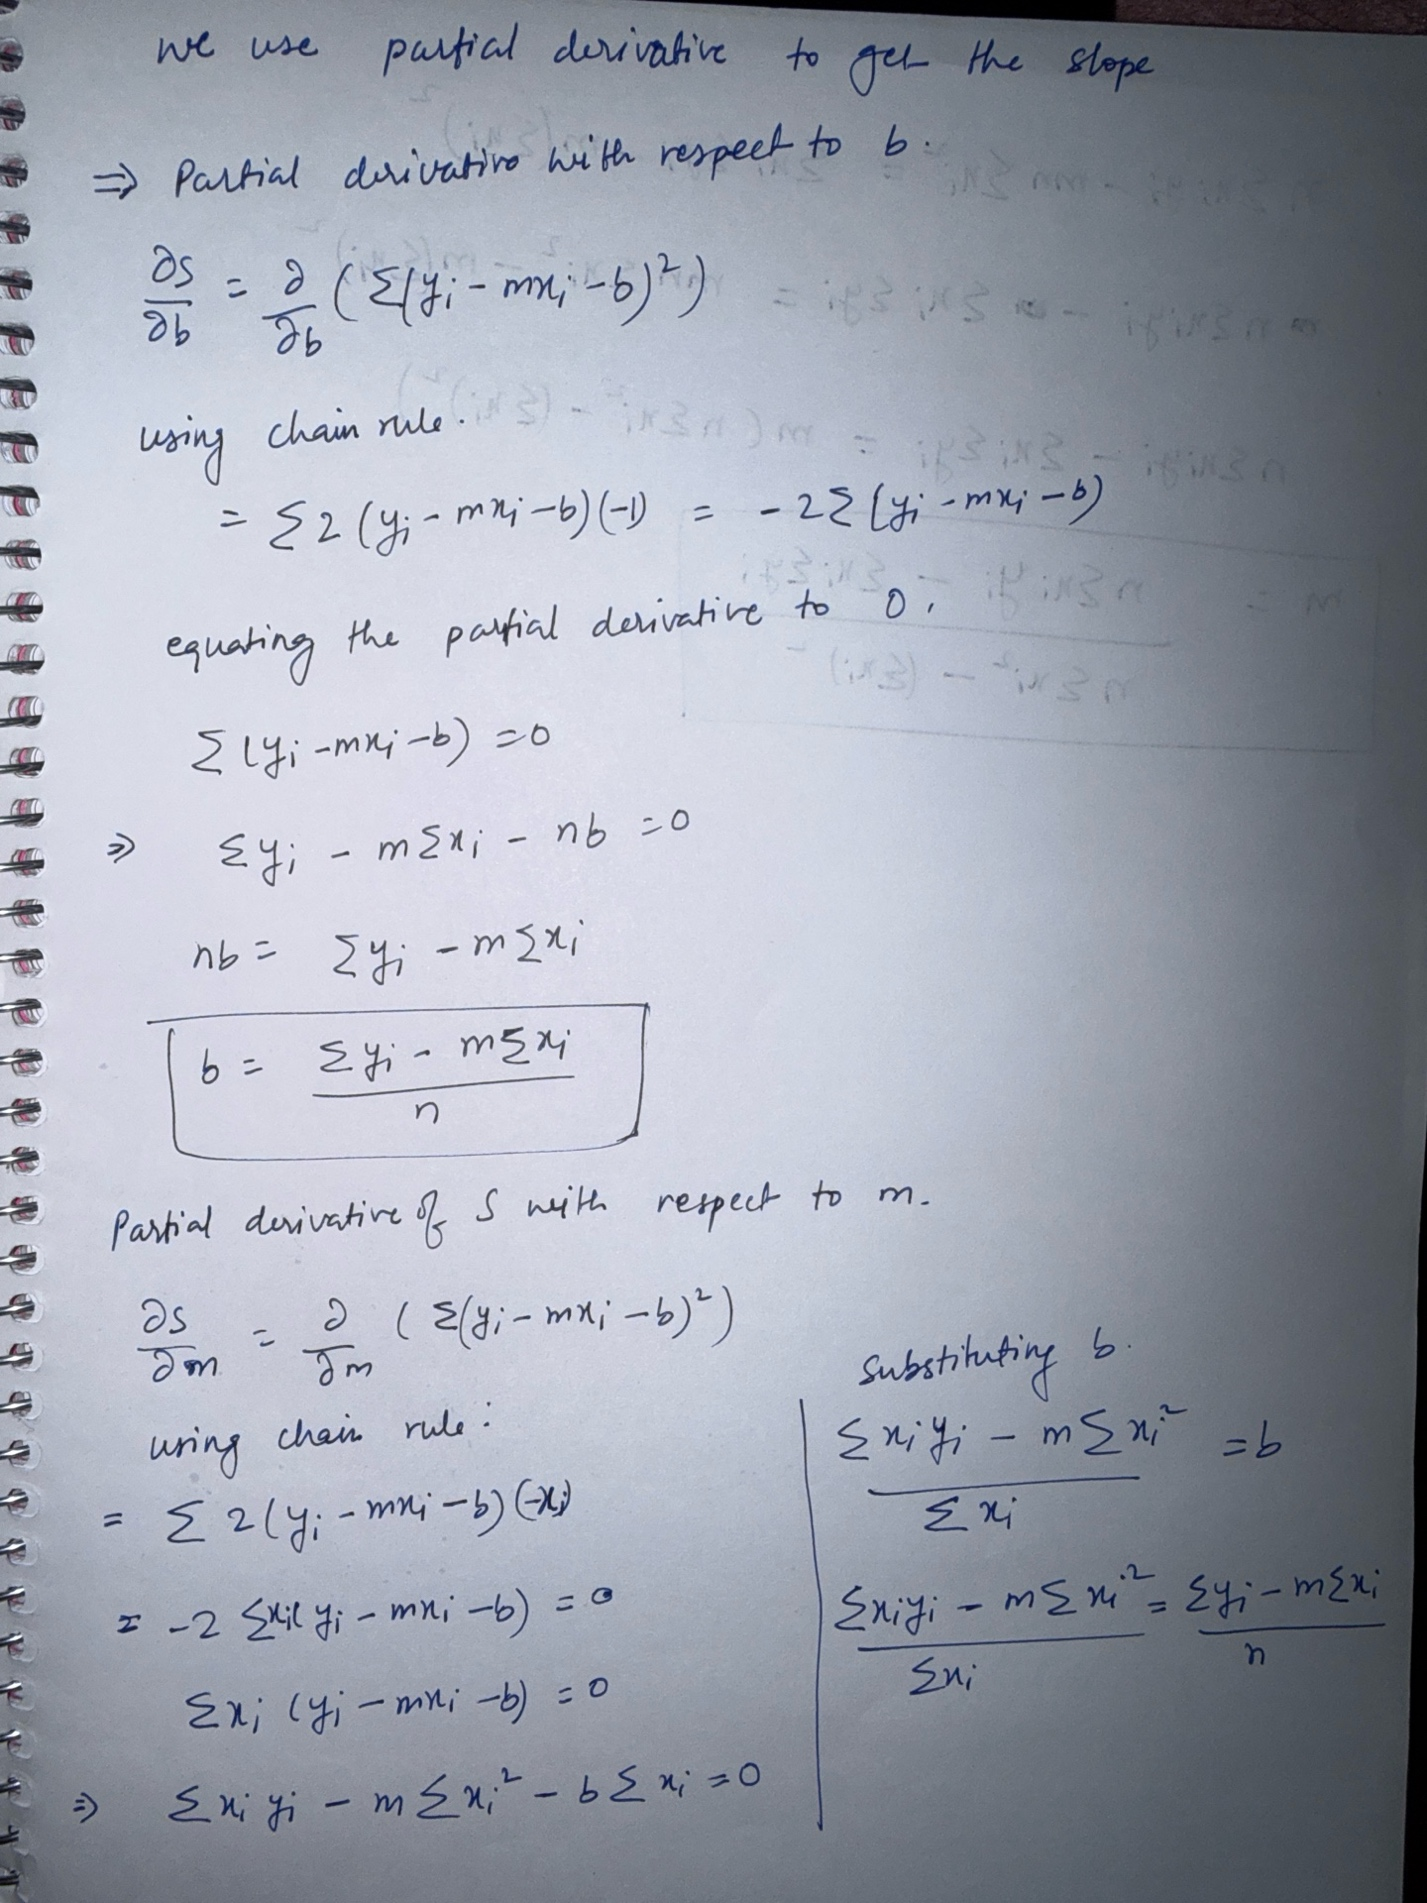 we use partial derivative to get the slope
⇒ Partial derivative with respect to b.
∂s/∂b = ∂/∂b (Σ(yi - mxi - b)²)
using chain rule.
= Σ2(yi - mxi - b)(-1) = -2Σ(yi - mxi - b)
equating the partial derivative to 0.
Σ(yi - mxi - b) = 0
⇒ Σyi - mΣxi - nb = 0
nb = Σyi - mΣxi
b = (Σyi - mΣxi)/n
Partial derivative of S with respect to m.
∂s/∂m = ∂/∂m (Σ(yi - mxi - b)²)
using chain rule:
= Σ2(yi - mxi - b)(-xi)
= -2 Σxi(yi - mxi - b) = 0
Σxi (yi - mxi - b) = 0
⇒ Σxiyi - mΣxi² - bΣxi = 0
Substituting b.
(Σxiyi - mΣxi²)/Σxi = b
(Σxiyi - mΣxi²)/Σxi = (Σyi - mΣxi)/n